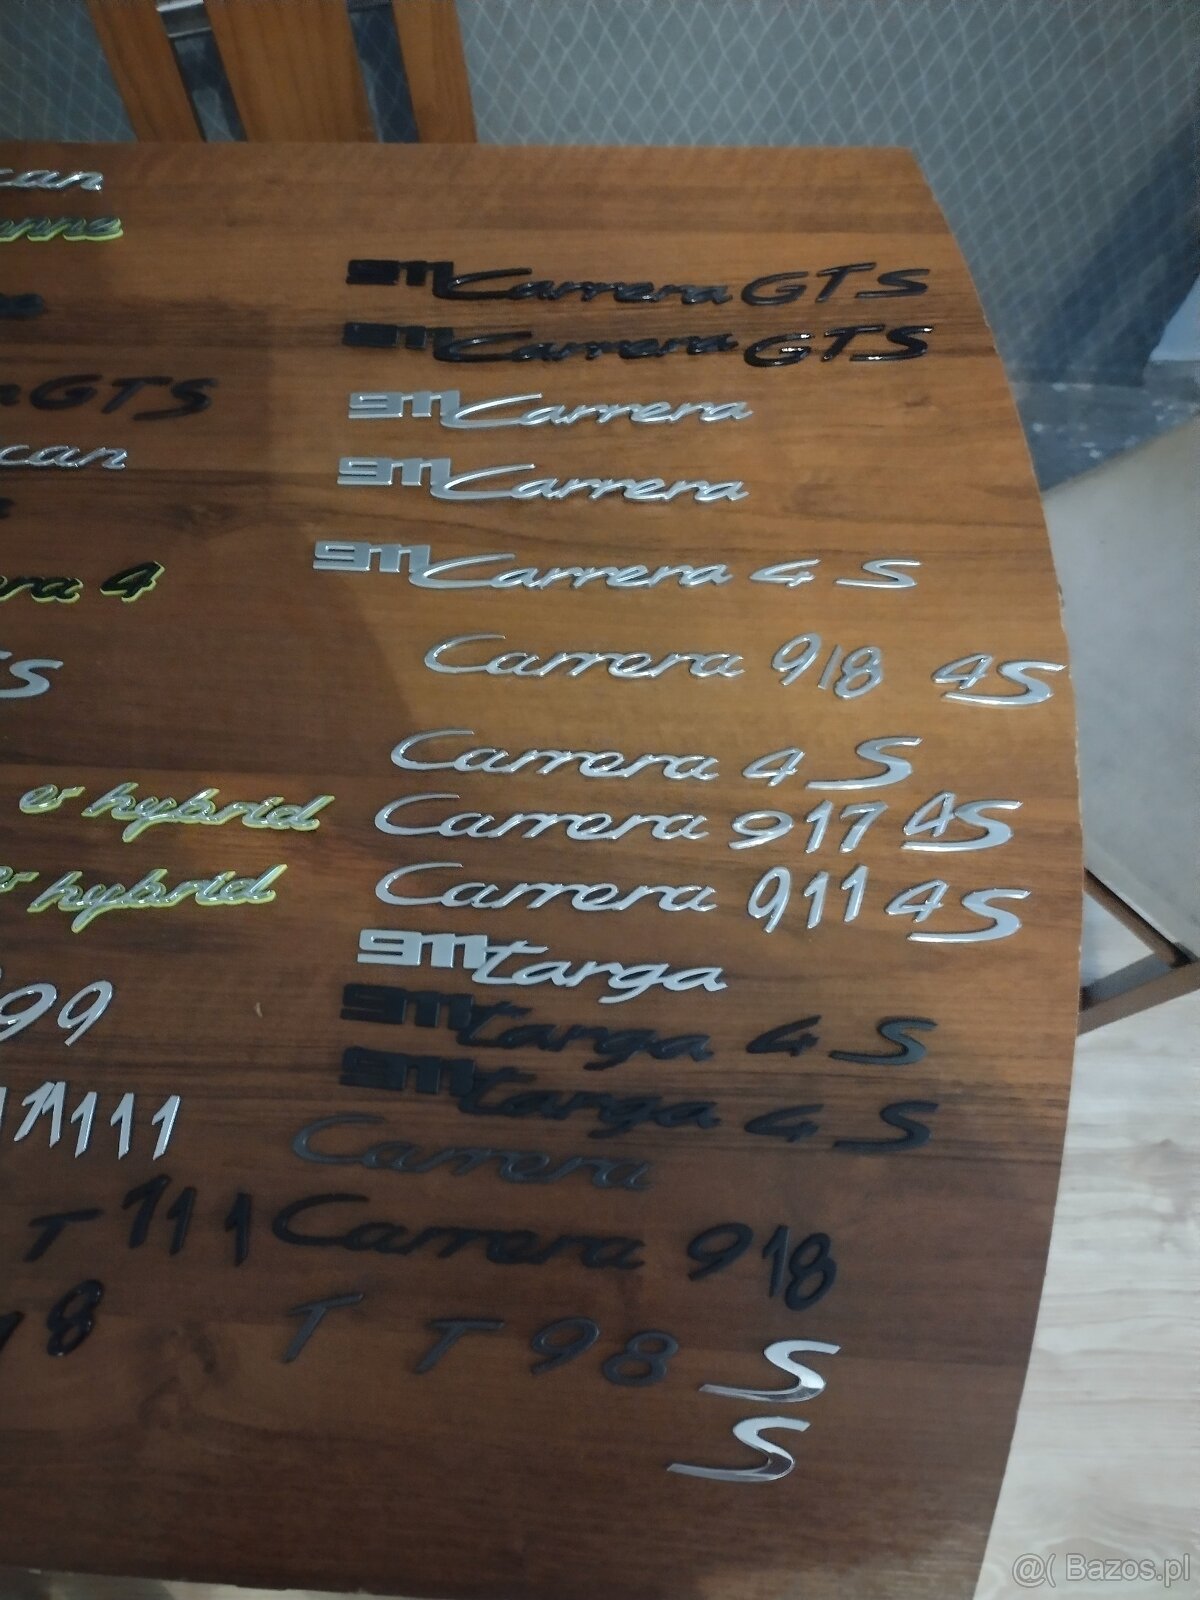 can
nne
911 Carrera GTS
911 Carrera GTS
GTS
911 Carrera
can
911 Carrera
911 Carrera 4 S
ra 4
Carrera 918 4S
S
Carrera 4 S
er hybrid
Carrera 917 4S
er hybrid
Carrera 911 4S
911 targa
99
911 targa 4 S
911 targa 4 S
111
Carrera
T 111 Carrera 918
8 T T 98 S
S
@( Bazos.pl